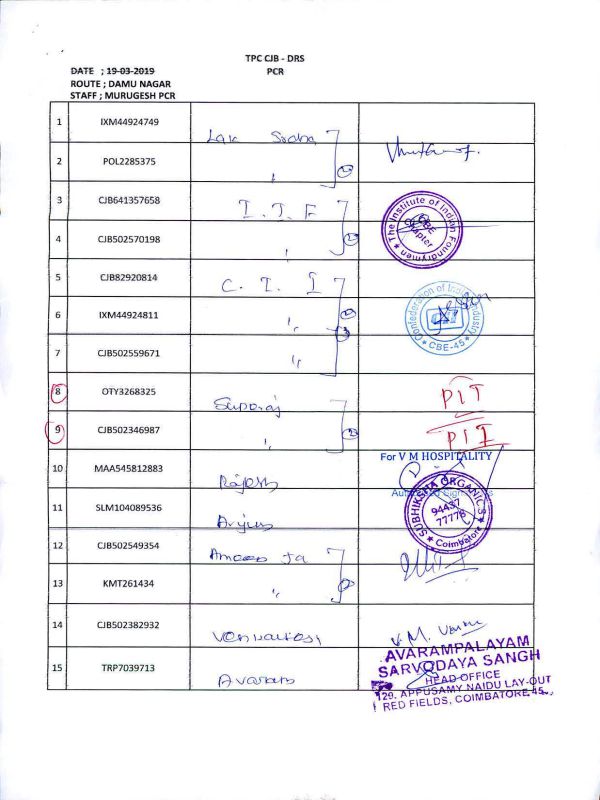 TPC CJB - DRS
DATE ; 19-03-2019
PCR
ROUTE ; DAMU NAGAR
STAFF ; MURUGESH PCR
1 IXM44924749
2 POL2285375
3 CJB641357658 I.I.F
The Institute of Indian Foundrymen
CBE Chapter
4 CJB502570198
5 CJB82920814 C. I. I
Confederation of Indian Industry
CBE-45
6 IXM44924811
7 CJB502559671
8 OTY3268325 PIT
9 CJB502346987 PIT
For V M HOSPITALITY
10 MAA545812883 Rajesh
11 SLM104089536 Arjun
SUBHIKSHA ORGANICS
94437
77778
Coimbatore
12 CJB502549354
13 KMT261434
14 CJB502382932
15 TRP7039713 Avaram
AVARAMPALAYAM
SARVODAYA SANGH
HEAD OFFICE
129, APPUSAMY NAIDU LAY-OUT
RED FIELDS, COIMBATORE-45.